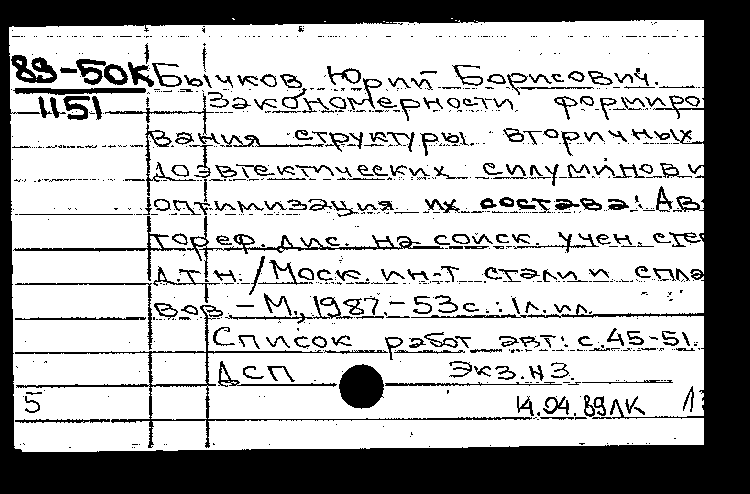 89-50К Бычков Юрий Борисович.
1151 Закономерности формиро
вания структуры вторичных
доэвтектических силуминов и
оптимизация их состава: Ав
тореф. дис. на соиск. учен. сте
д.т.н. / Моск. ин-т стали и спла
вов. – М., 1987. – 53 с. : 1 л. ил.
Список работ авт: с. 45-51.
ДСП Экз. N3.
5 14.04.89 ЛК